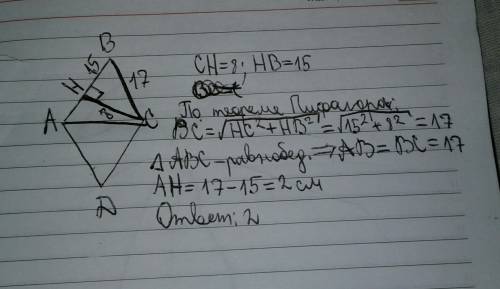 B
15
H
17
A
8
C
D
CH=8; HB=15
По теореме Пифагора:
BC=√HC²+HB²=√15²+8²=17
△ABC-равнобед.⇒AB=BC=17
AH=17-15=2 см
Ответ: 2